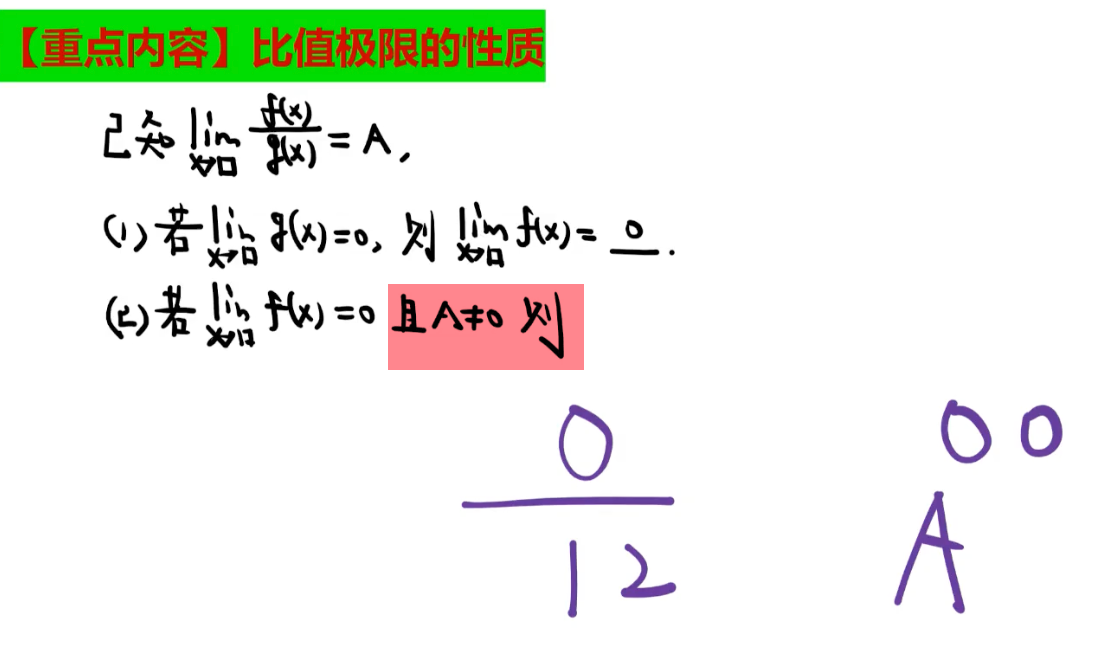 【重点内容】比值极限的性质
已知 lim x→□ f(x)/g(x) = A,
(1) 若 lim x→□ g(x)=0, 则 lim x→□ f(x)= 0 .
(2) 若 lim x→□ f(x)=0 且 A≠0 则
0
12
0 0
A